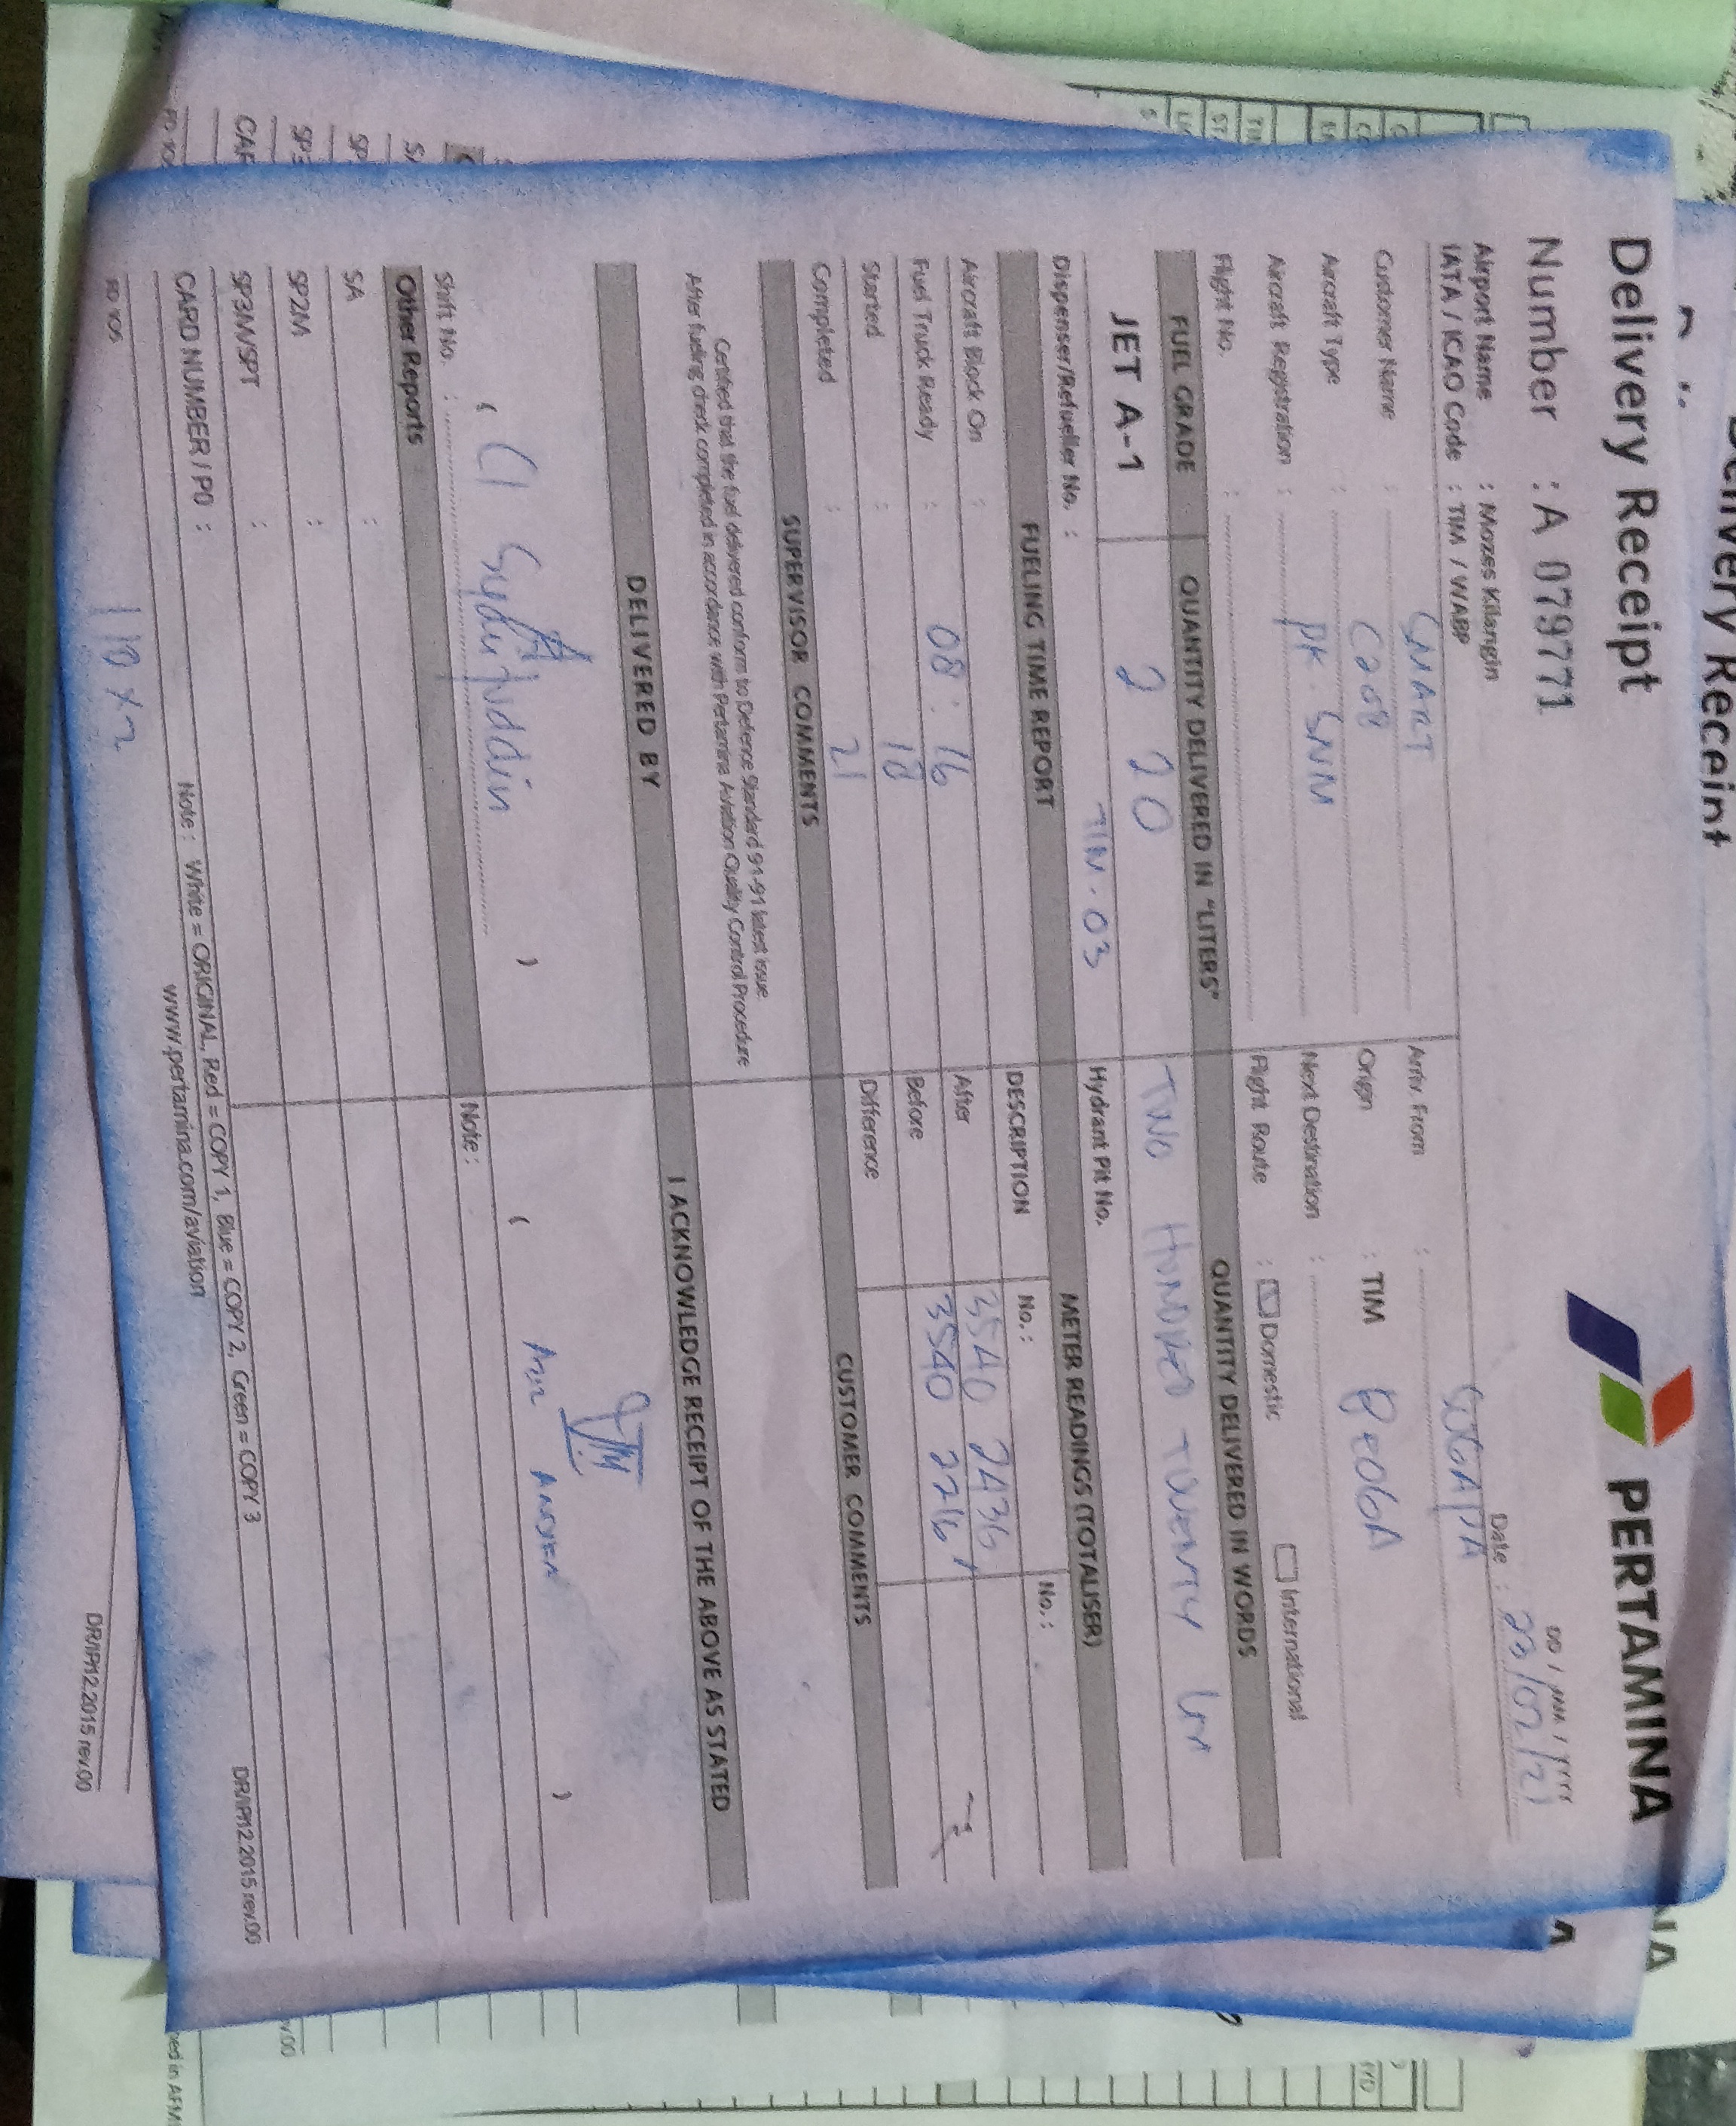 Delivery Receipt
PERTAMINA
Number : A 079771
DD / MM / YYYY
Date : 23/02/21
Airport Name : Mozes Kilangin
IATA / ICAO Code : TIM / WABP
Customer Name : SMART
Arriv. From :
Aircraft Type : C208
Origin : TIM
Aircraft Registration : PK. SNM
Next Destination :
Flight No. :
Flight Route : Domestic International
FUEL GRADE QUANTITY DELIVERED IN "LITERS" QUANTITY DELIVERED IN WORDS
JET A-1 220 TWO HUNDRED TWENTY
Dispenser/Refueller No. : TIM.03 Hydrant Pit No.
FUELING TIME REPORT METER READINGS (TOTALISER)
DESCRIPTION No. : No. :
Aircraft Block On :
After 3540 2436
Fuel Truck Ready : 08 : 16
Before 3540 2216
Started : 18
Difference
Completed : 21
SUPERVISOR COMMENTS CUSTOMER COMMENTS
Certified that the fuel delivered conform to Defence Standard 91-91 latest issue.
After fueling check completed in accordance with Pertamina Aviation Quality Control Procedure
DELIVERED BY I ACKNOWLEDGE RECEIPT OF THE ABOVE AS STATED
Shift No. :
Other Reports Note :
SA :
SP2M :
SP3M/SPT :
CARD NUMBER / PO :
Note : White = ORIGINAL, Red = COPY 1, Blue = COPY 2, Green = COPY 3
www.pertamina.com/aviation
DR/IP/12.2015 rev.00
FD 105
110 x 2
DR/IP/12.2015 rev.00